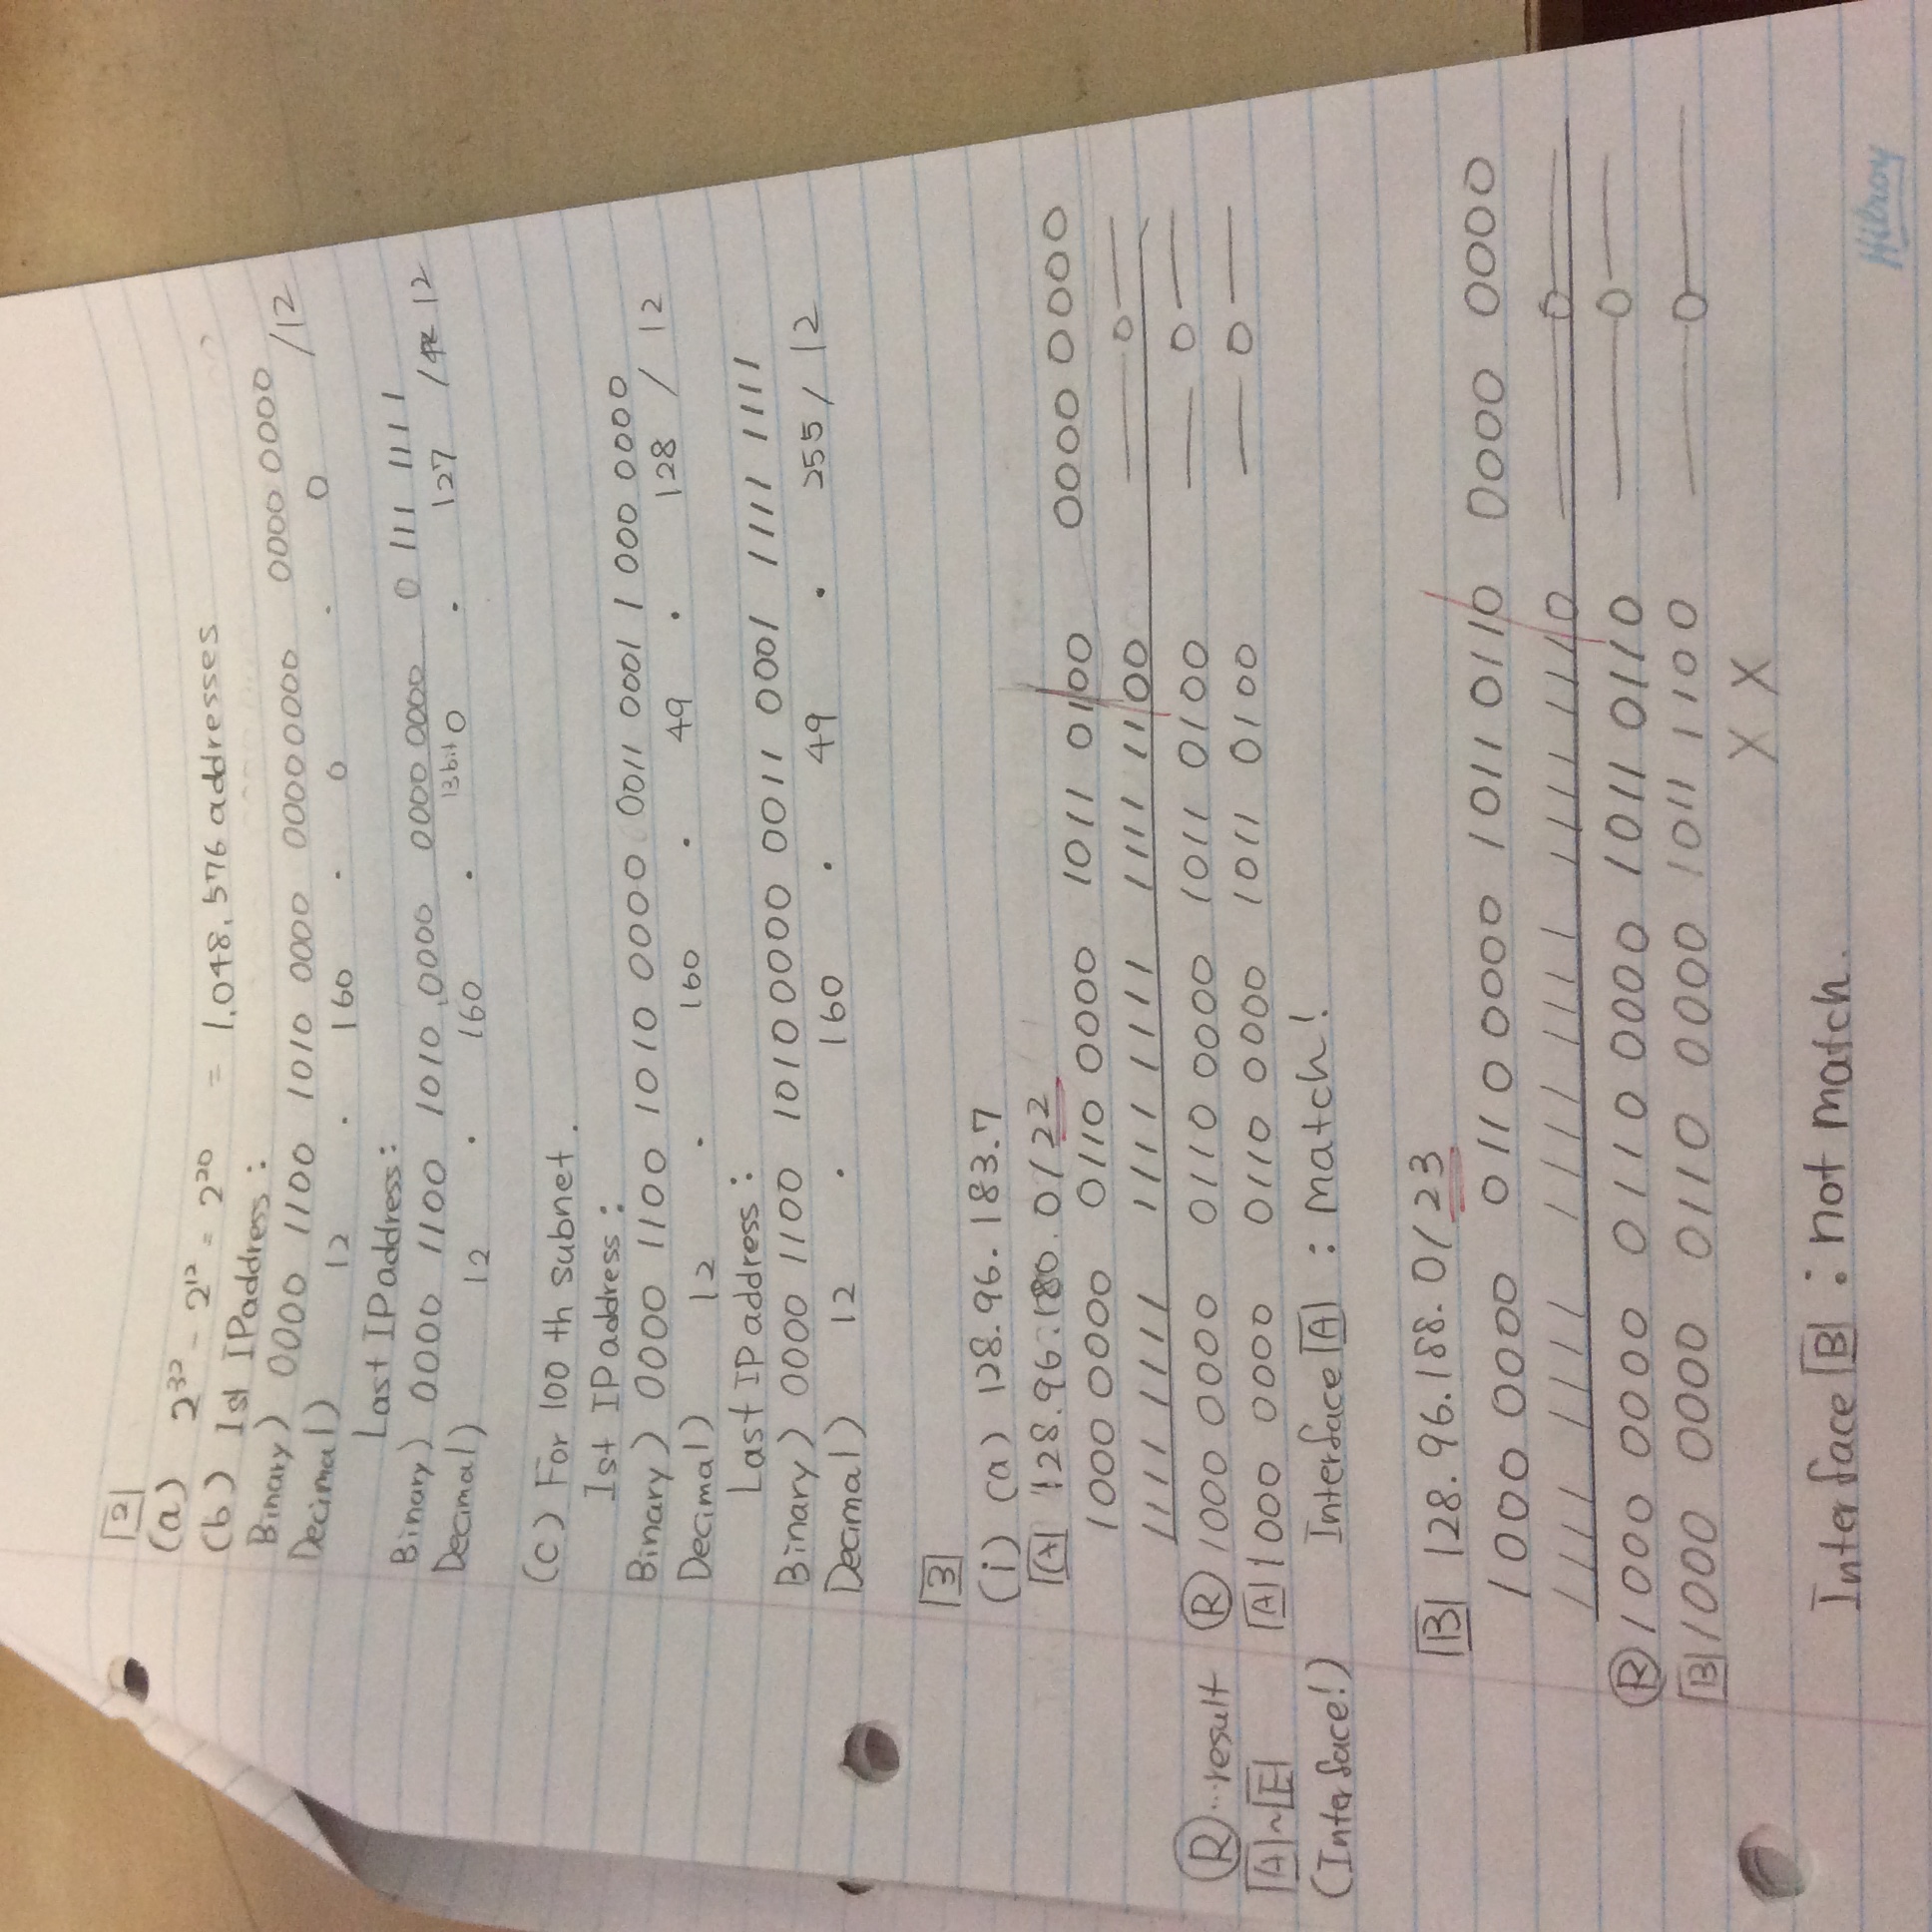 2
(a) 2^32 - 2^12 = 2^20 = 1,048,576 addresses
(b) 1st IP address :
Binary) 0000 1100 1010 0000 0000 0000 0000 0000
Decimal) 12 . 160 . 0 . 0 /12
Last IP address :
Binary) 0000 1100 1010 0000 0000 0000 0111 1111
Decimal) 12 . 160 . 13bit 0 . 127 / 12
(c) For 100 th subnet.
1st IP address :
Binary) 0000 1100 1010 0000 0011 0001 1000 0000
Decimal) 12 . 160 . 49 . 128 / 12
Last IP address :
Binary) 0000 1100 1010 0000 0011 0001 1111 1111
Decimal) 12 . 160 . 49 . 255 / 12
3
(i) (a) 128.96.183.7
A 128.96.180.0/22
1000 0000 0110 0000 1011 0100 0000 0000
1111 1111 1111 1111 1111 1100 — 0 —
R ... result R 1000 0000 0110 0000 1011 0100 — 0 —
A ~ E A 1000 0000 0110 0000 1011 0100 — 0 —
(Interface!) Interface A : match!
B 128.96.188.0/23
1000 0000 0110 0000 1011 0110 0000 0000
1111 1111 1111 1111 1111 1110 — 0 —
R 1000 0000 0110 0000 1011 0110 — 0 —
B 1000 0000 0110 0000 1011 1100 — 0 —
X X
Interface B : not match.
Hilroy